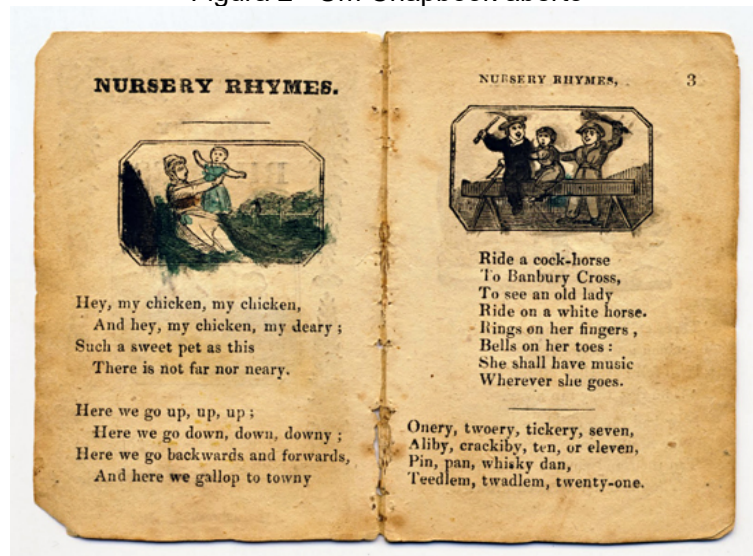 Figura 2 - Um Chapbook aberto
NURSERY RHYMES.
Hey, my chicken, my chicken,
And hey, my chicken, my deary ;
Such a sweet pet as this
There is not far nor neary.
Here we go up, up, up ;
Here we go down, down, downy ;
Here we go backwards and forwards,
And here we gallop to towny
NURSERY RHYMES, 3
Ride a cock-horse
To Banbury Cross,
To see an old lady
Ride on a white horse.
Rings on her fingers ,
Bells on her toes :
She shall have music
Wherever she goes.
Onery, twoery, tickery, seven,
Aliby, crackiby, ten, or eleven,
Pin, pan, whisky dan,
Teedlem, twadlem, twenty-one.